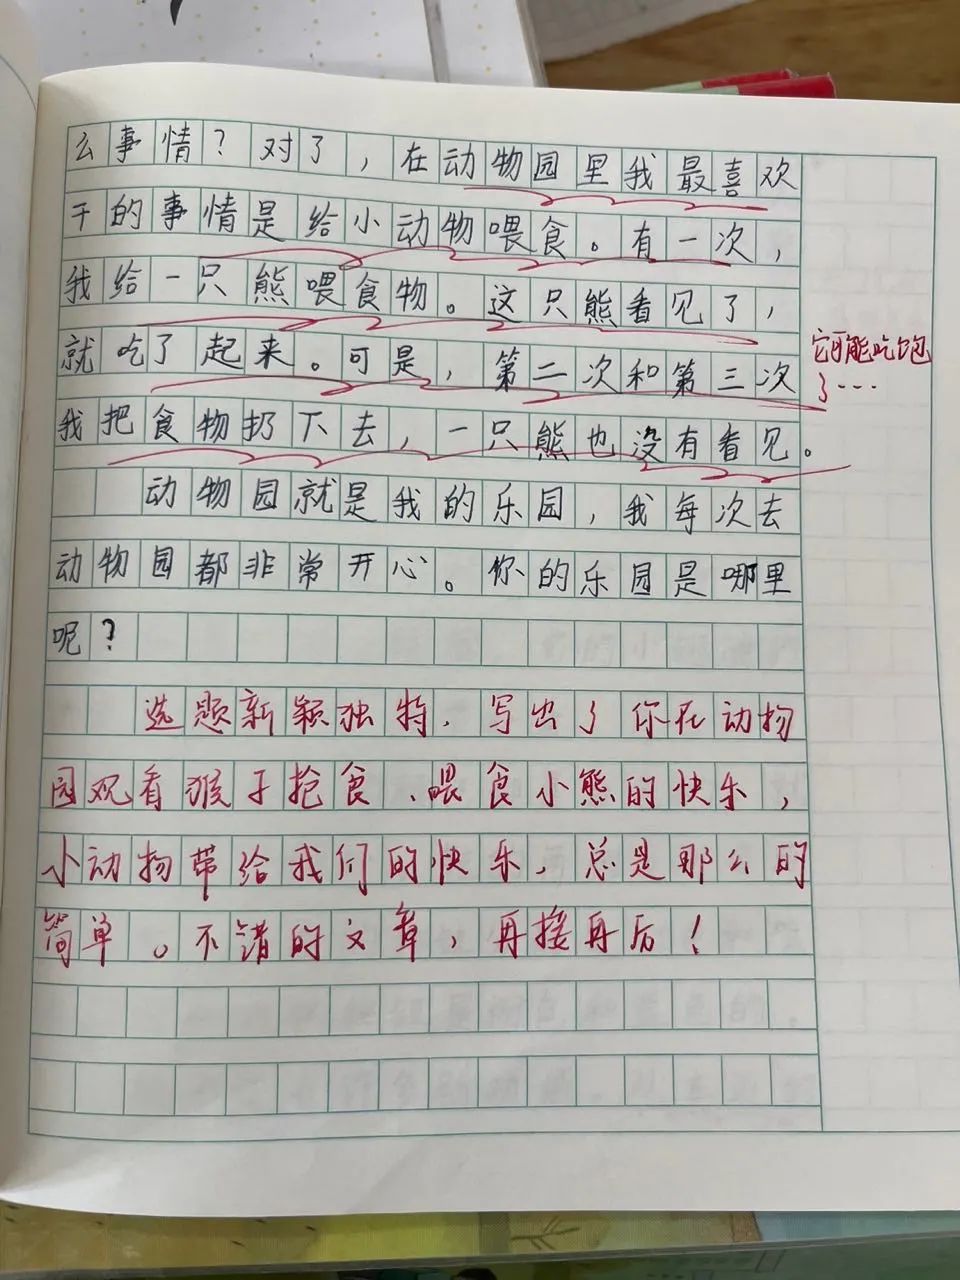 么事情？对了，在动物园里我最喜欢
干的事情是给小动物喂食。有一次，
我给一只熊喂食物。这只熊看见了，
就吃了起来。可是，第二次和第三次
它可能吃饱
了……
我把食物扔下去，一只熊也没有看见。
动物园就是我的乐园，我每次去
动物园都非常开心。你的乐园是哪里
呢？
选题新颖独特，写出了你在动物
园观看猴子抢食、喂食小熊的快乐，
小动物带给我们的快乐，总是那么的
简单。不错的文章，再接再后！